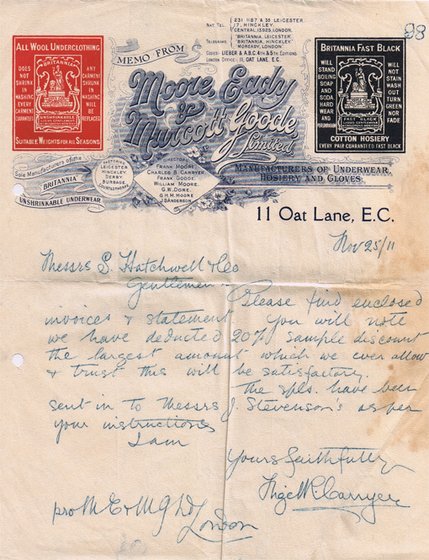 98
231 HB'7 & 30 LEICESTER
NAT. TEL. 17, HINCKLEY.
CENTRAL 13035, LONDON.
"BRITANNIA, LEICESTER"
TELEGRAMS "BRITANNIA, HINCKLEY"
MOREADY, LONDON
CODES: LIEBER & A.B.C. 4TH & 5TH EDITIONS
LONDON OFFICE: 11, OAT LANE, E.C.
MEMO FROM
Moore, Eady
&
Murcott Goode
Limited
MANUFACTURERS OF UNDERWEAR,
HOSIERY AND GLOVES
ALL WOOL UNDERCLOTHING
BRITANNIA
DOES NOT SHRINK IN WASHING
EVERY GARMENT GUARANTEED
ANY GARMENT SHRUNK IN WASHING WILL BE REPLACED
UNSHRINKABLE
SUITABLE WEIGHTS FOR ALL SEASONS
BRITANNIA FAST BLACK
WILL STAND BOILING SOAP AND SODA HARD WEAR AND PERSPIRATION
BRITANNIA
WILL NOT STAIN WASH OUT TURN GREEN NOR FADE
FAST BLACK
COTTON HOSIERY
EVERY PAIR GUARANTEED FAST BLACK
Sole Manufacturers of the
"BRITANNIA"
UNSHRINKABLE UNDERWEAR
FACTORIES
LEICESTER
HINCKLEY
DERBY
BURBAGE
COUNTESTHORPE
DIRECTORS
FRANK MOORE
CHARLES B. CARRYER
FRANK GOODE
WILLIAM MOORE
G.W. DONE
G.H.M. MOORE
J.D. ANDERSON
11 Oat Lane, E.C.
Nov 25/11
Messrs S. Hatchwell & Co
Gentlemen
Please find enclosed
invoices & statement You will note
we have deducted 20% sample discount
the largest amount which we ever allow
& trust this will be satisfactory.
The spls. have been
sent in to Messrs J. Stevenson's as per
your instructions
I am
Yours faithfully
Carryer
pro M E & M G Ld
London